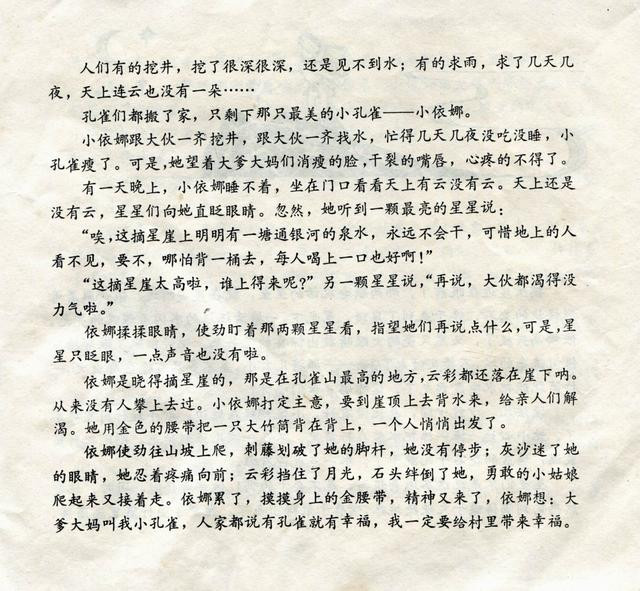 人们有的挖井，挖了很深很深，还是见不到水；有的求雨，求了几天几
夜，天上连云也没有一朵……
孔雀们都搬了家，只剩下那只最美的小孔雀——小依娜。
小依娜跟大伙一齐挖井，跟大伙一齐找水，忙得几天几夜没吃没睡，小
孔雀瘦了。可是，她望着大爹大妈们消瘦的脸，干裂的嘴唇，心疼的不得了。
有一天晚上，小依娜睡不着，坐在门口看看天上有云没有云。天上还是
没有云，星星们向她直眨眼睛。忽然，她听到一颗最亮的星星说：
“唉，这摘星崖上明明有一塘通银河的泉水，永远不会干，可惜地上的人
看不见，要不，哪怕背一桶去，每人喝上一口也好啊！”
“这摘星崖太高啦，谁上得来呢？”另一颗星星说，“再说，大伙都渴得没
力气啦。”
依娜揉揉眼睛，使劲盯着那两颗星星看，指望她们再说点什么，可是，星
星只眨眼，一点声音也没有啦。
依娜是晓得摘星崖的，那是在孔雀山最高的地方，云彩都还落在崖下呐。
从来没有人攀上去过。小依娜打定主意，要到崖顶上去背水来，给亲人们解
渴。她用金色的腰带把一只大竹筒背在背上，一个人悄悄出发了。
依娜使劲往山坡上爬，刺藤划破了她的脚杆，她没有停步；灰沙迷了她
的眼睛，她忍着疼痛向前；云彩挡住了月光，石头绊倒了她，勇敢的小姑娘
爬起来又接着走。依娜累了，摸摸身上的金腰带，精神又来了，依娜想：大
爹大妈叫我小孔雀，人家都说有孔雀就有幸福，我一定要给村里带来幸福。